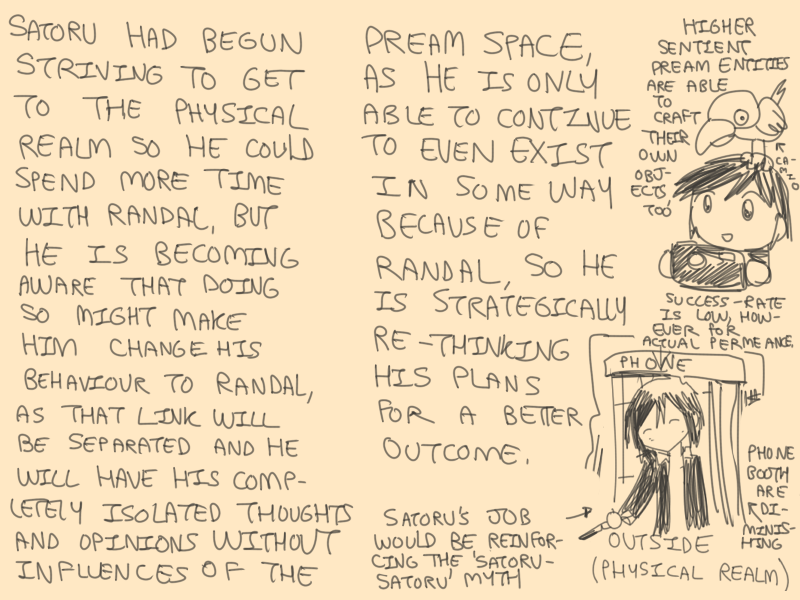 SATORU HAD BEGUN
STRIVING TO GET
TO THE PHYSICAL
REALM SO HE COULD
SPEND MORE TIME
WITH RANDAL, BUT
HE IS BECOMING
AWARE THAT DOING
SO MIGHT MAKE
HIM CHANGE HIS
BEHAVIOUR TO RANDAL,
AS THAT LINK WILL
BE SEPARATED AND HE
WILL HAVE HIS COMP-
LETELY ISOLATED THOUGHTS
AND OPINIONS WITHOUT
INFLUENCES OF THE
DREAM SPACE,
AS HE IS ONLY
ABLE TO CONTINUE
TO EVEN EXIST
IN SOME WAY
BECAUSE OF
RANDAL, SO HE
IS STRATEGICALLY
RE-THINKING
HIS PLANS
FOR A BETTER
OUTCOME.
SATORU'S JOB
WOULD BE REINFOR-
CING THE 'SATORU-
SATORU' MYTH
HIGHER
SENTIENT
DREAM ENTITIES
ARE ABLE
TO
CRAFT
THEIR
OWN
OBJ-
ECTS,
TOO
CA-
MNO
SUCCESS-RATE
IS LOW, HOW-
EVER FOR
ACTUAL PERMEANCE.
PHONE
PHONE
BOOTH
ARE
DI-
MINIS-
HING
OUTSIDE
(PHYSICAL REALM)